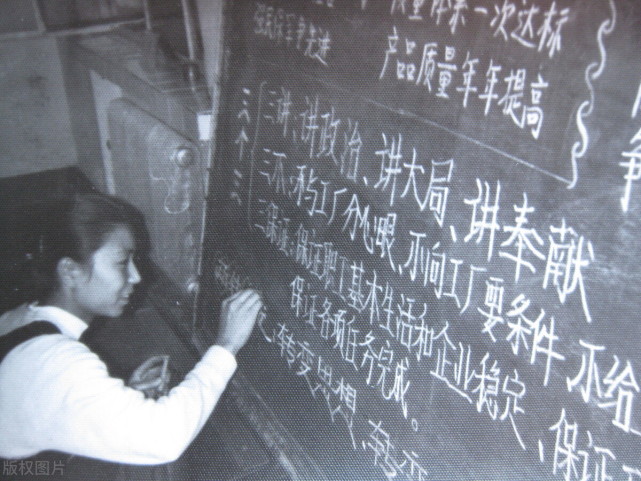 质量体系一次达标
争先进
产品质量年年提高
争
三个三
三讲:讲政治、讲大局、讲奉献
三不:不与工厂分心眼、不向工厂要条件 不给
三保证:保证职工基本生活和企业稳定、保证
保证各项任务完成。
转变思想、转变
版权图片